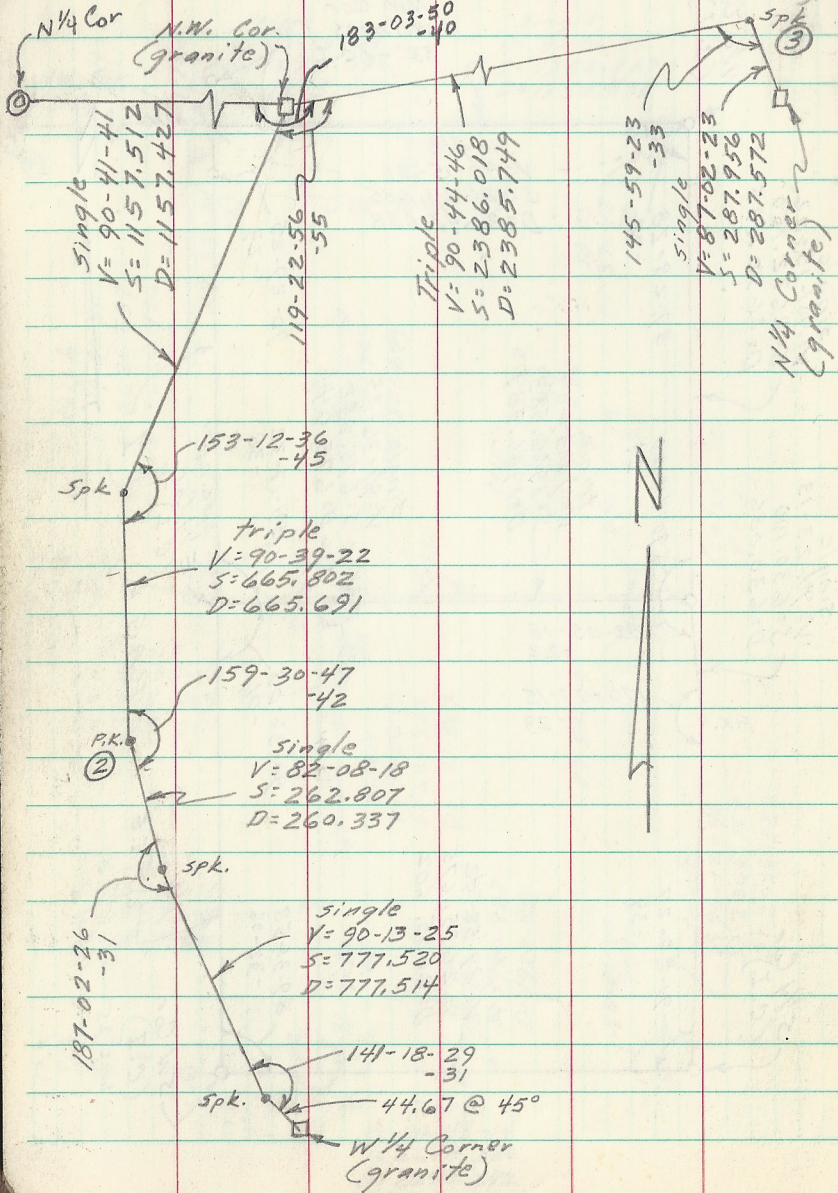 N 1/4 Cor
N.W. Cor.
(granite)
183-03-50
-40
Spk
3
single
V= 90-41-41
S= 1157.512
D= 1157.427
119-22-56
-55
Triple
V= 90-44-46
S= 2386.018
D= 2385.749
145-59-23
-33
single
V= 87-02-23
S= 287.956
D= 287.572
N 1/4 Corner
(granite)
153-12-36
-45
Spk
N
triple
V= 90-39-22
S= 665.802
D= 665.691
159-30-47
-42
P.K.
2
single
V= 82-08-18
S= 262.807
D= 260.337
spk.
187-02-26
-31
single
V= 90-13-25
S= 777.520
D= 777.514
141-18-29
-31
spk.
44.67 @ 45°
W 1/4 Corner
(granite)